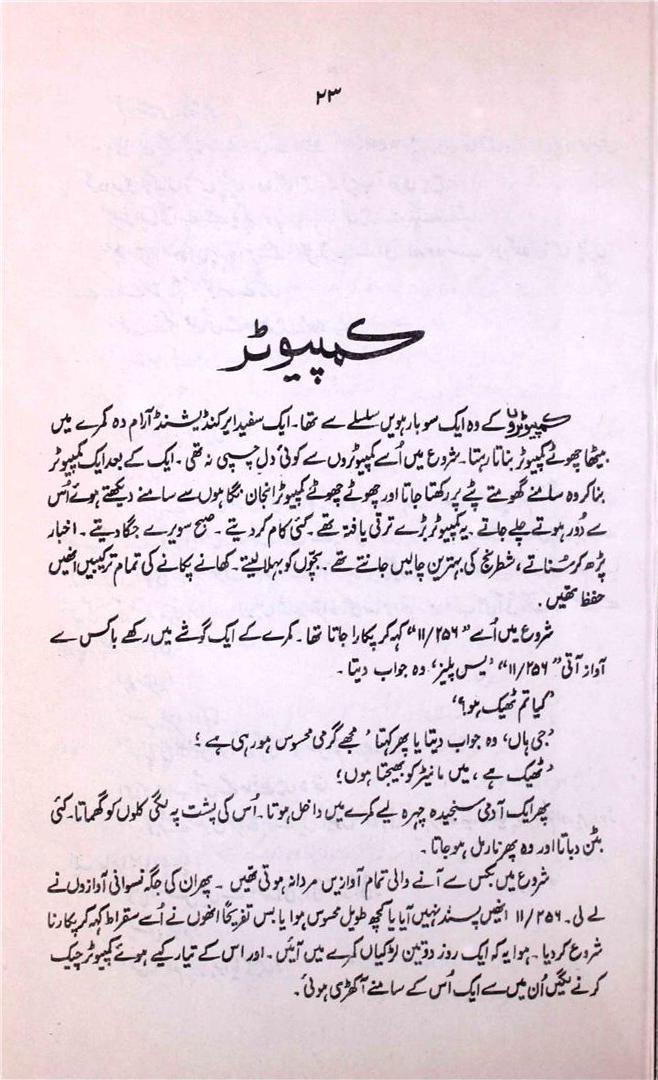 ۲۳
کمپیوٹر
کمپیوٹروں کے وہ ایک سو بارہویں سلسلے سے تھا۔ ایک سفید ایر کنڈیشنڈ آرام دہ کمرے میں
بیٹھا چھوٹے کمپیوٹر بناتا رہتا۔ شروع میں اُسے کمپیوٹروں سے کوئی دل چسپی نہ تھی۔ ایک کے بعد ایک کمپیوٹر
بنا کر وہ سامنے گھومتے پٹے پر رکھتا جاتا اور چھوٹے چھوٹے کمپیوٹر انجان نگاہوں سے سامنے دیکھتے ہوئے اُس
سے دُور ہوتے چلے جاتے۔ یہ کمپیوٹر بڑے ترقی یافتہ تھے۔ کئی کام کر دیتے۔ صبح سویرے جگا دیتے۔ اخبار
پڑھ کر سُناتے، شطرنج کی بہترین چالیں جانتے تھے۔ بچّوں کو بہلا لیتے۔ کھانے پکانے کی تمام ترکیبیں انھیں
حفظ تھیں۔
شروع میں اُسے "۱۱/۲۵۶" کہہ کر پکارا جاتا تھا۔ کمرے کے ایک گوشے میں رکھے باکس سے
آواز آتی "۱۱/۲۵۶" 'یس پلیز' وہ جواب دیتا۔
'کیا تم ٹھیک ہو؟'
'جی ہاں' وہ جواب دیتا یا پھر کہتا 'مجھے گرمی محسوس ہو رہی ہے'
'ٹھیک ہے، میں مانیٹر کو بھیجتا ہوں'
پھر ایک آدمی سنجیدہ چہرہ لیے کمرے میں داخل ہوتا۔ اُس کی پشت پہ لگی کلوں کو گھماتا۔ کئی
بٹن دباتا اور وہ پھر نارمل ہو جاتا۔
شروع میں بکس سے آنے والی تمام آوازیں مردانہ ہوتی تھیں۔ پھر ان کی جگہ نسوانی آوازوں نے
لے لی۔ ۱۱/۲۵۶ انھیں پسند نہیں آیا یا کچھ طویل محسوس ہوا یا بس تفریحاً انھوں نے اُسے سقراط کہہ کر پکارنا
شروع کر دیا۔ ہوا یہ کہ ایک روز دو تین لڑکیاں کمرے میں آئیں۔ اور اس کے تیار کیے ہوئے کمپیوٹر چیک
کرنے لگیں اُن میں سے ایک اُس کے سامنے آ کھڑی ہوئی۔